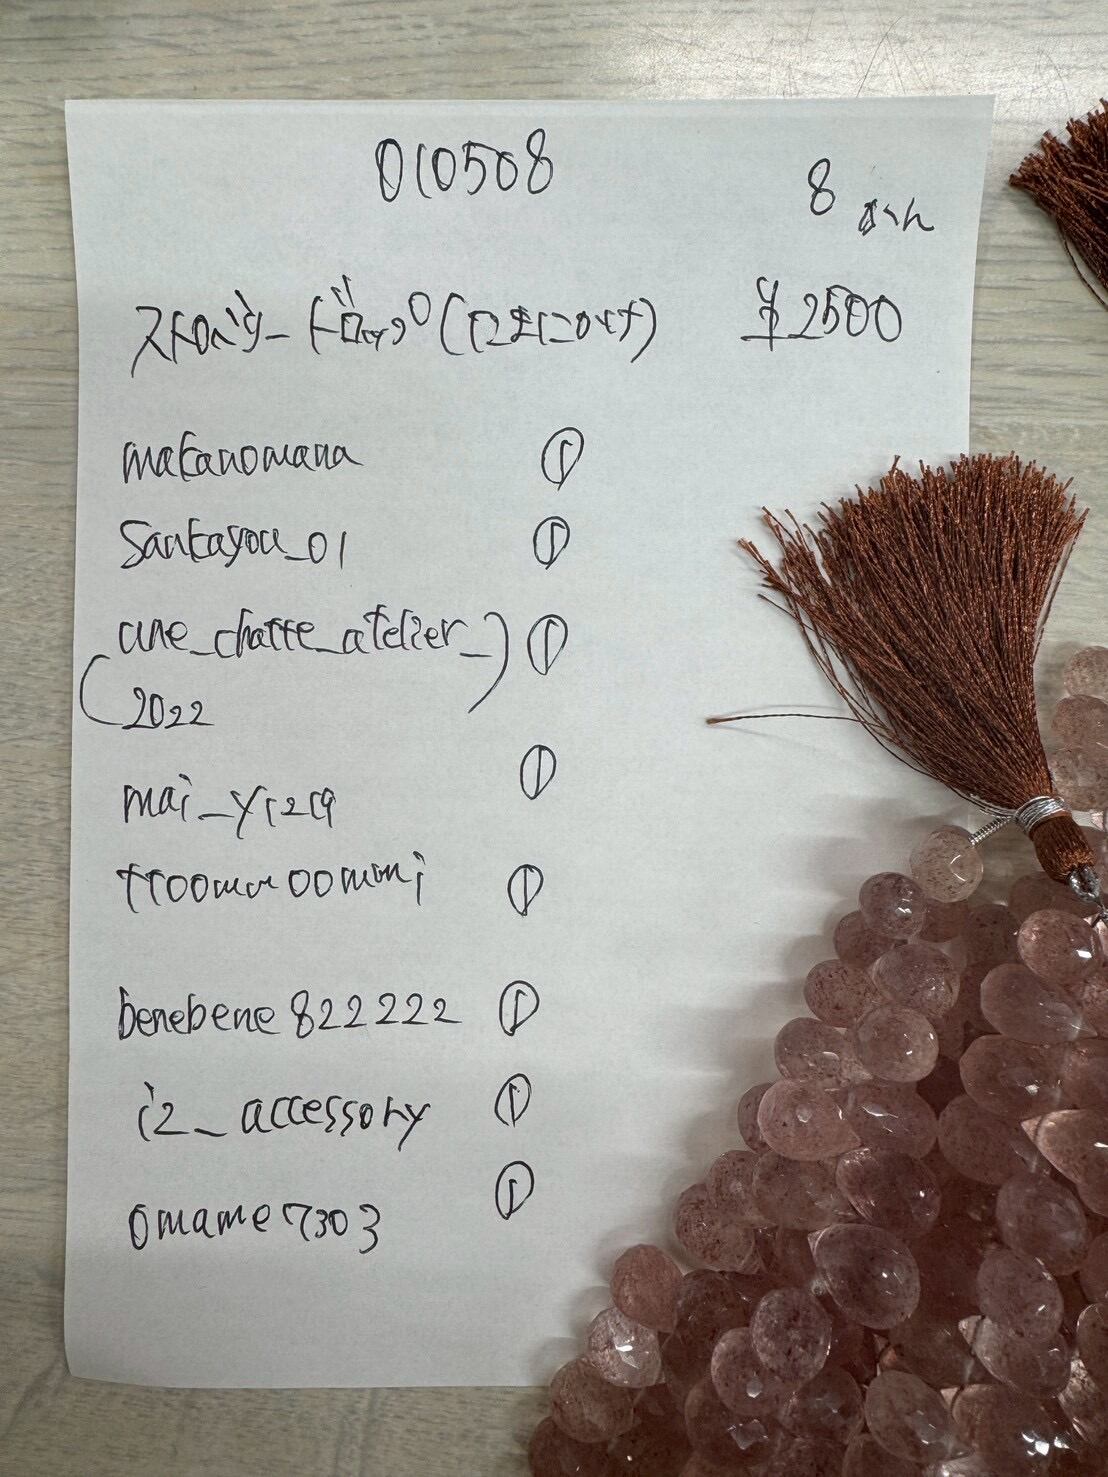 010508
8
ストロベリードロップ ¥2500
makanomana ①
Sankayou_01 ①
(une_chatte_atelier_ ①
2022)
mai_y1219 ①
benebene822222 ①
i2_accessory ①
omame7303 ①